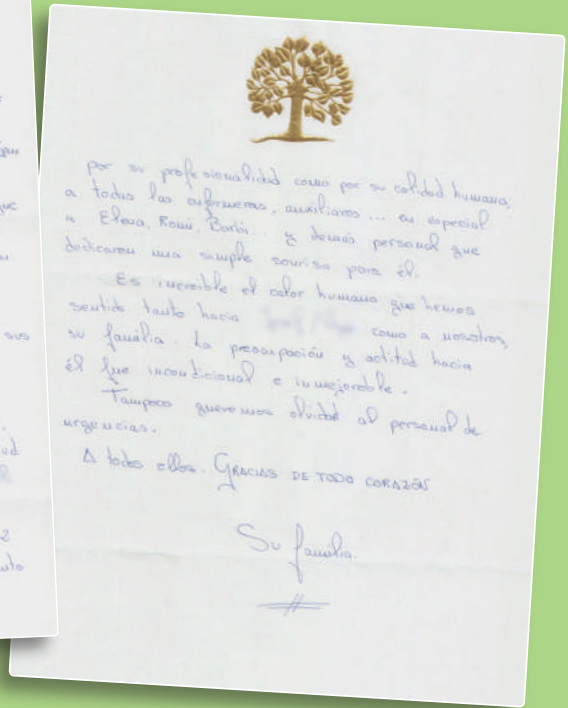 por su profesionalidad como por su calidad humana,
a todas las enfermeras, auxiliares... en especial
a Elena, Romi, Barbi... y demás personal que
dedicaron una simple sonrisa para él.
Es increíble el calor humano que hemos
sentido tanto hacia como a nosotros,
su familia. La preocupación y actitud hacia
él fue incondicional e inmejorable.
Tampoco queremos olvidar al personal de
urgencias.
A todos ellos. GRACIAS DE TODO CORAZÓN
Su familia.
que
sus